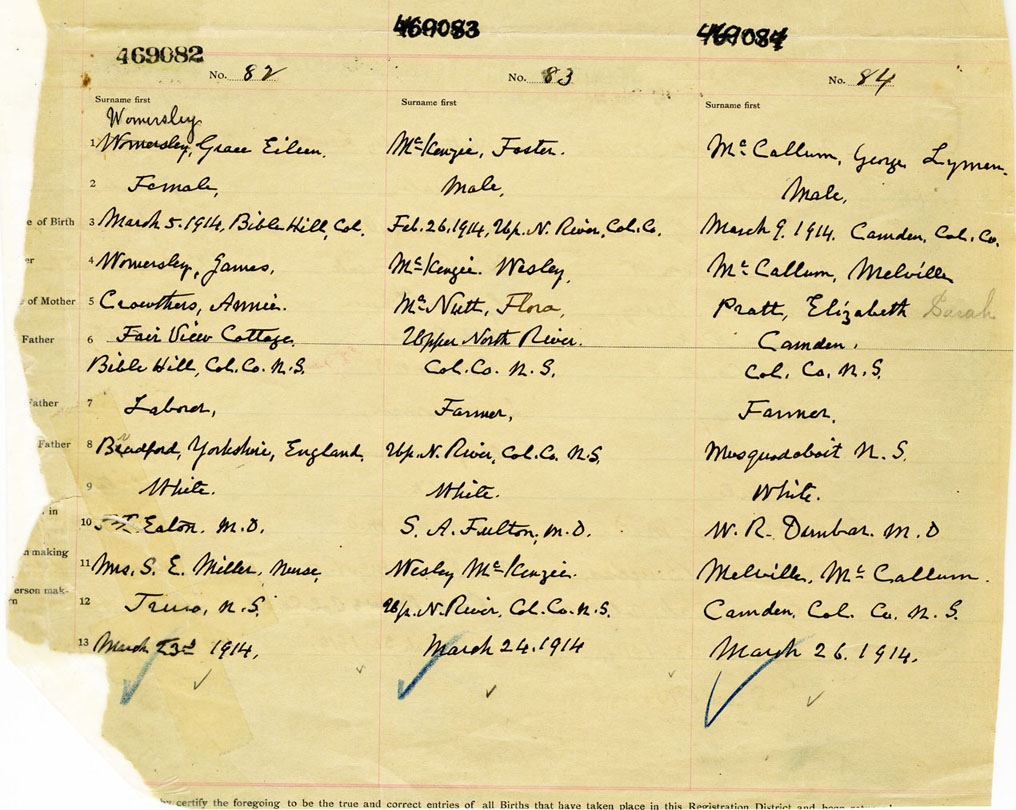 469082 469083 469084
No. 82 No. 83 No. 84
Surname first Surname first Surname first
Womersley
1 Womersley, Grace Eileen. McKenzie, Foster. McCallum, George Lyman.
2 Female, Male, Male,
e of Birth 3 March 5. 1914, Bible Hill, Col. Feb. 26. 1914, Up. N. River, Col. Co. March 9. 1914. Camden, Col. Co.
er 4 Womersley, James, McKenzie. Wesley, McCallum, Melville
of Mother 5 Crowthers, Annie. McNutt, Flora, Pratt, Elizabeth Sarah
Father 6 Fair View Cottage, Upper North River. Camden,
Bible Hill, Col. Co. N.S. Col. Co. N.S. Col. Co. N.S.
Father 7 Laborer, Farmer, Farmer,
Father 8 Bradford, Yorkshire, England, Up. N. River, Col. Co. N.S. Musquodoboit N.S.
9 White. White. White.
in
10 Eaton. M.D. S. A. Fulton, M.D. W. R. Dunbar. M.D
n making
11 Mrs. S. E. Miller, Nurse, Wesley McKenzie. Melville, McCallum.
erson mak-
12 Truro, N.S. Up. N. River, Col. Co. N.S. Camden, Col. Co. N.S.
13 March 23rd 1914, March 24. 1914 March 26. 1914.
by certify the foregoing to be the true and correct entries of all Births that have taken place in this Registration District and